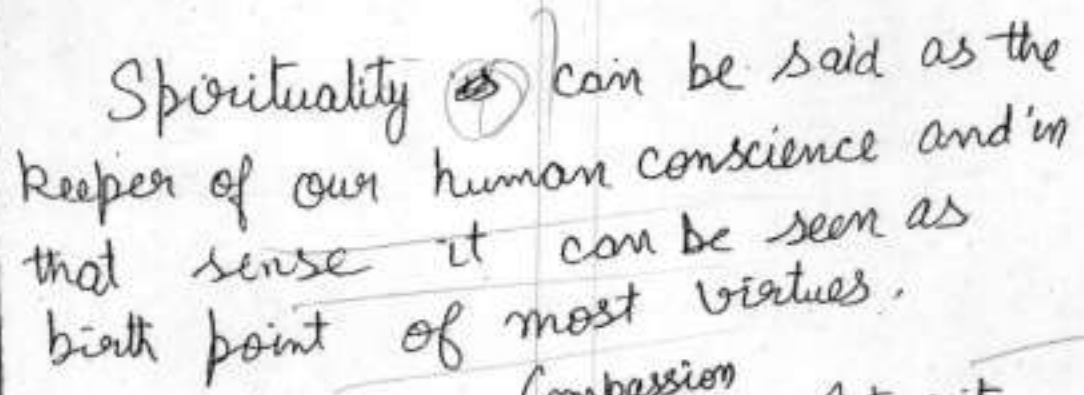 Spirituality can be said as the
keeper of our human conscience and in
that sense it can be seen as
birth point of most virtues.
Compassion